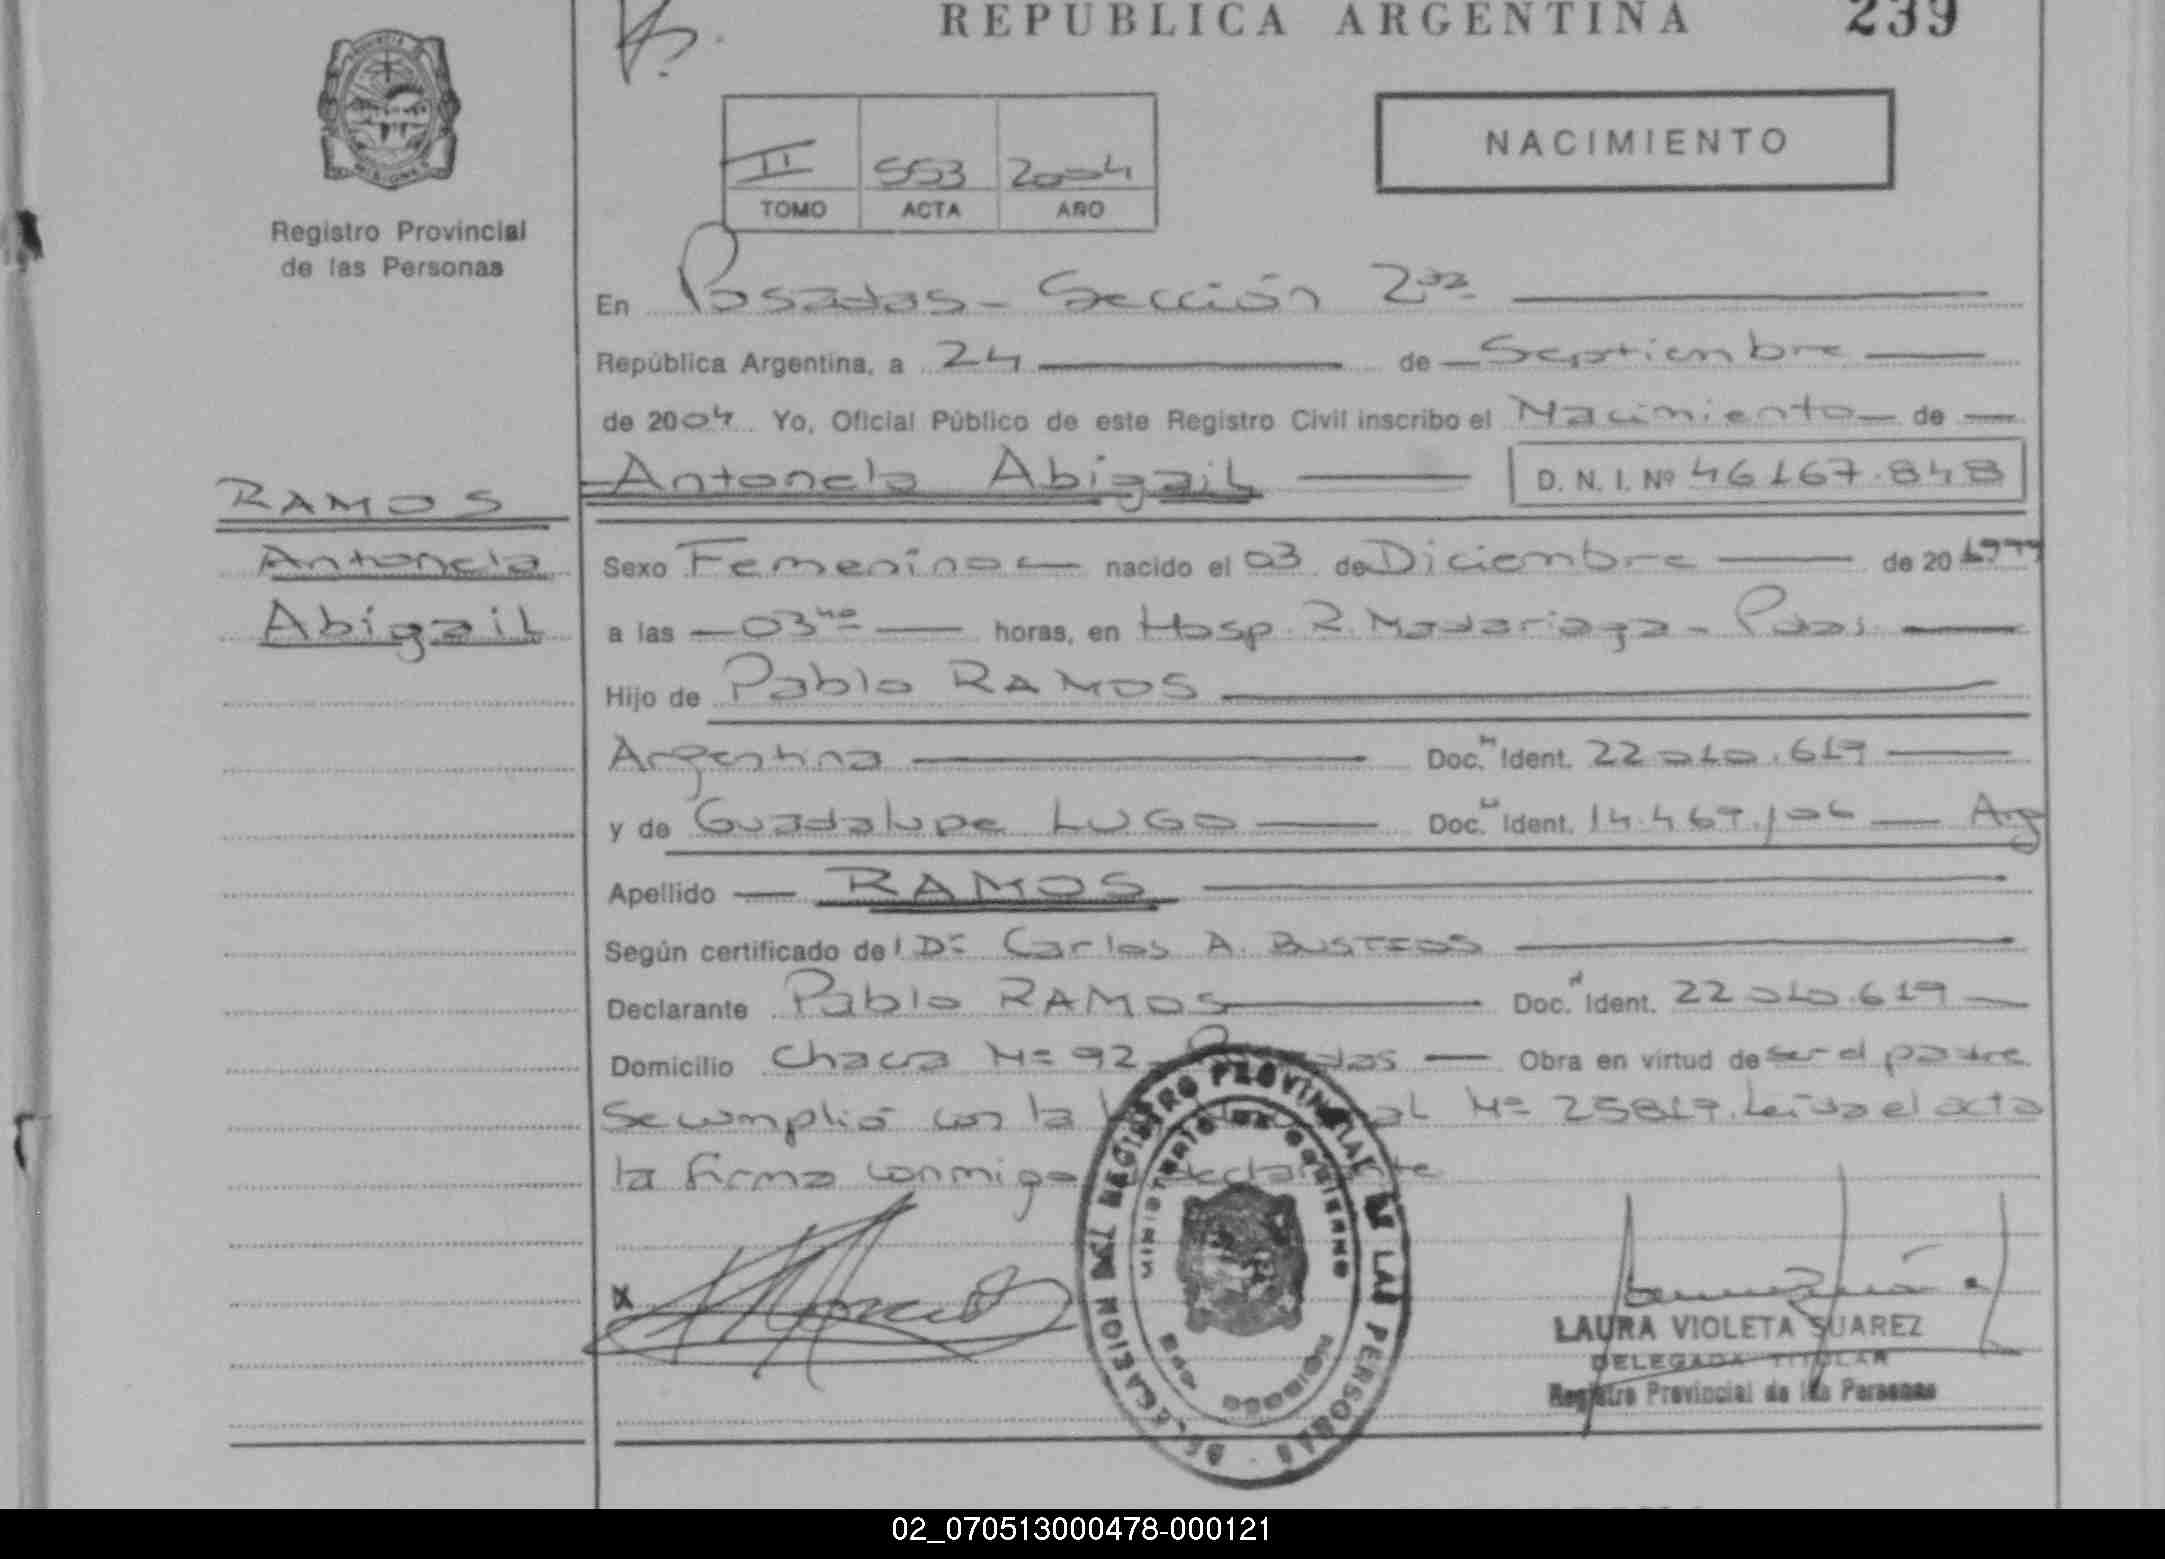 REPUBLICA ARGENTINA 239
NACIMIENTO
II 553 2004
TOMO ACTA AÑO
Registro Provincial
de las Personas
En Posadas - Sección 2da
República Argentina, a 24 de Septiembre
de 2004 Yo, Oficial Público de este Registro Civil inscribo el Nacimiento de
Antonela Abigail D. N. I. Nº 46167.848
RAMOS
Antonela
Abigail
Sexo Femenino nacido el 03 de Diciembre de 20 1999
a las 03 horas, en Hosp. R. Madariaga - Pdas.
Hijo de Pablo RAMOS
Argentina Doc. Ident. 22 010.619
y de Guadalupe LUGO Doc. Ident. 14.469.106 Arg
Apellido RAMOS
Según certificado de Dr Carlos A. BUSTEOS
Declarante Pablo RAMOS Doc. Ident. 22 010.619
Domicilio Chacra Nº 92 Obra en virtud de ser el padre
Se cumplió con la Nº 25819. Leída el acta
la firma conmigo declarante
DELEGACION DEL REGISTRO PROVINCIAL DE LAS PERSONAS
MINISTERIO DE GOBIERNO
MISIONES
LAURA VIOLETA SUAREZ
DELEGADA TITULAR
Registro Provincial de las Personas
02_070513000478-000121